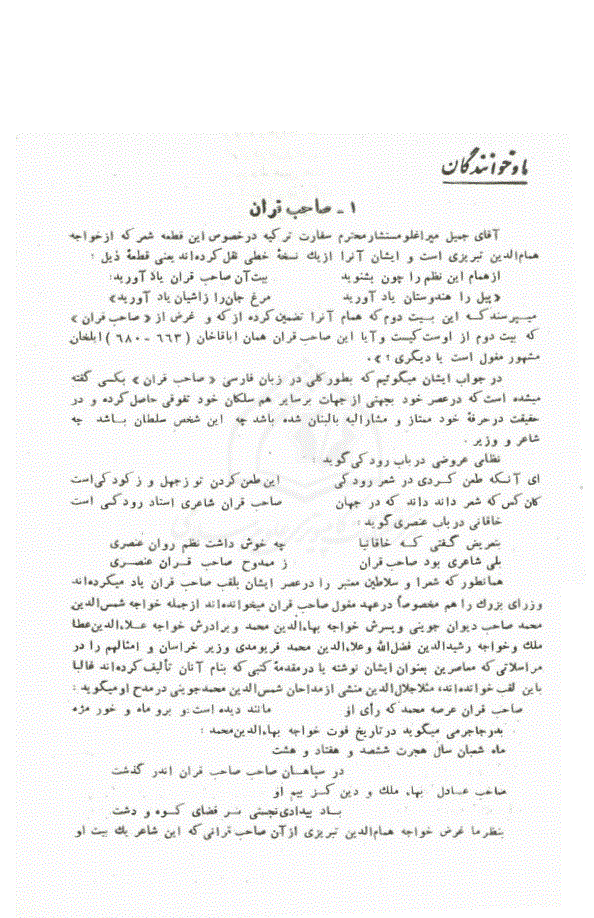 ما و خوانندگان
۱ - صاحب قران
آقای جمیل میراغلو مستشار محترم سفارت ترکیه در خصوص این قطعه شعر که از خواجه
همام‌الدین تبریزی است و ایشان آنرا از یك نسخهٔ خطی نقل کرده‌اند یعنی قطعهٔ ذیل :
از همام این نظم را چون بشنوید بیت آن صاحب قران یاد آورید:
«پیل را هندوستان یاد آورید مرغ جان را زاشیان یاد آورید»
میپرسند که این بیت دوم که همام آنرا تضمین کرده از که و غرض از « صاحب قران »
که بیت دوم از اوست کیست و آیا این صاحب قران همان اباقاخان ( ۶۶۳ - ۶۸۰ ) ایلخان
مشهور مغول است یا دیگری ؟ » .
در جواب ایشان میگوئیم که بطور کلی در زبان فارسی « صاحب قران » بکسی گفته
میشده است که در عصر خود بجهتی از جهات بر سایر هم سلکان خود تفوقی حاصل کرده و در
حقیقت در حرفهٔ خود ممتاز و مشار الیه بالبنان شده باشد چه این شخص سلطان باشد چه
شاعر و وزیر .
نظامی عروضی در باب رودکی گوید :
ای آنکه طعن کردی در شعر رودکی این طعن کردن تو ز جهل و ز کودکی است
کان کس که شعر داند داند که در جهان صاحب قران شاعری استاد رودکی است
خاقانی در باب عنصری گوید :
بتعریض گفتی که خاقانیا چه خوش داشت نظم روان عنصری
بلی شاعری بود صاحب قران ز ممدوح صاحب قران عنصری
همانطور که شعرا و سلاطین معتبر را در عصر ایشان بلقب صاحب قران یاد میکرده‌اند
وزرای بزرك را هم مخصوصاً در عهد مغول صاحب قران میخوانده‌اند از جمله خواجه شمس‌الدین
محمد صاحب دیوان جوینی و پسرش خواجه بهاءالدین محمد و برادرش خواجه علاءالدین عطا
ملك و خواجه رشیدالدین فضل‌الله و علاءالدین محمد فریومدی وزیر خراسان و امثالهم را در
مراسلاتی که معاصرین بعنوان ایشان نوشته یا در مقدمهٔ کتبی که بنام آنان تألیف کرده‌اند غالبا
باین لقب خوانده‌اند، مثلا جلال‌الدین منشی از مداحان شمس‌الدین محمد جوینی در مدح او میگوید :
صاحب قران عرصه محمد که رأی او مانند دیده است و برو ماه و خور مژه
بدر جاجرمی میگوید در تاریخ فوت خواجه بهاءالدین محمد :
ماه شعبان سال هجرت ششصد و هفتاد و هشت
در سپاهان صاحب صاحب قران اندر گذشت
صاحب عادل بهاء ملك و دین کز بیم او
باد بیدادی نجستی بر فضای کوه و دشت
بنظر ما غرض خواجه همام‌الدین تبریزی از آن صاحب قرانی که این شاعر یك بیت او